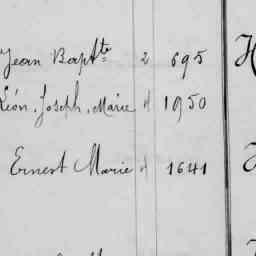 Jean Bapte 2 695
Léon, Joseph, Marie d 1950
Ernest Marie d 1641